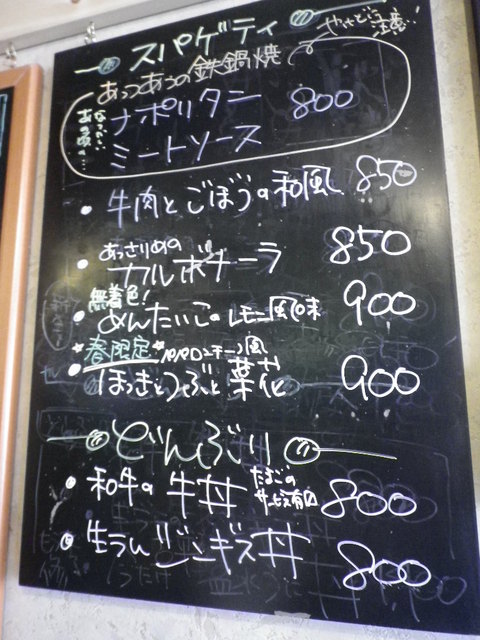 スパゲティ
やけど注意!!
あつあつの鉄鍋焼
なつかしい
あの頃の…
ナポリタン 800
ミートソース
牛肉とごぼうの和風 850
あっさりめの
カルボナーラ 850
無着色!
めんたいこのレモン風味 900
春限定 ペペロンチーノ風
ほっきとつぶと菜花 900
どんぶり
和牛の牛丼 たまごの 800
サービス有
生ラムジンギス丼 800